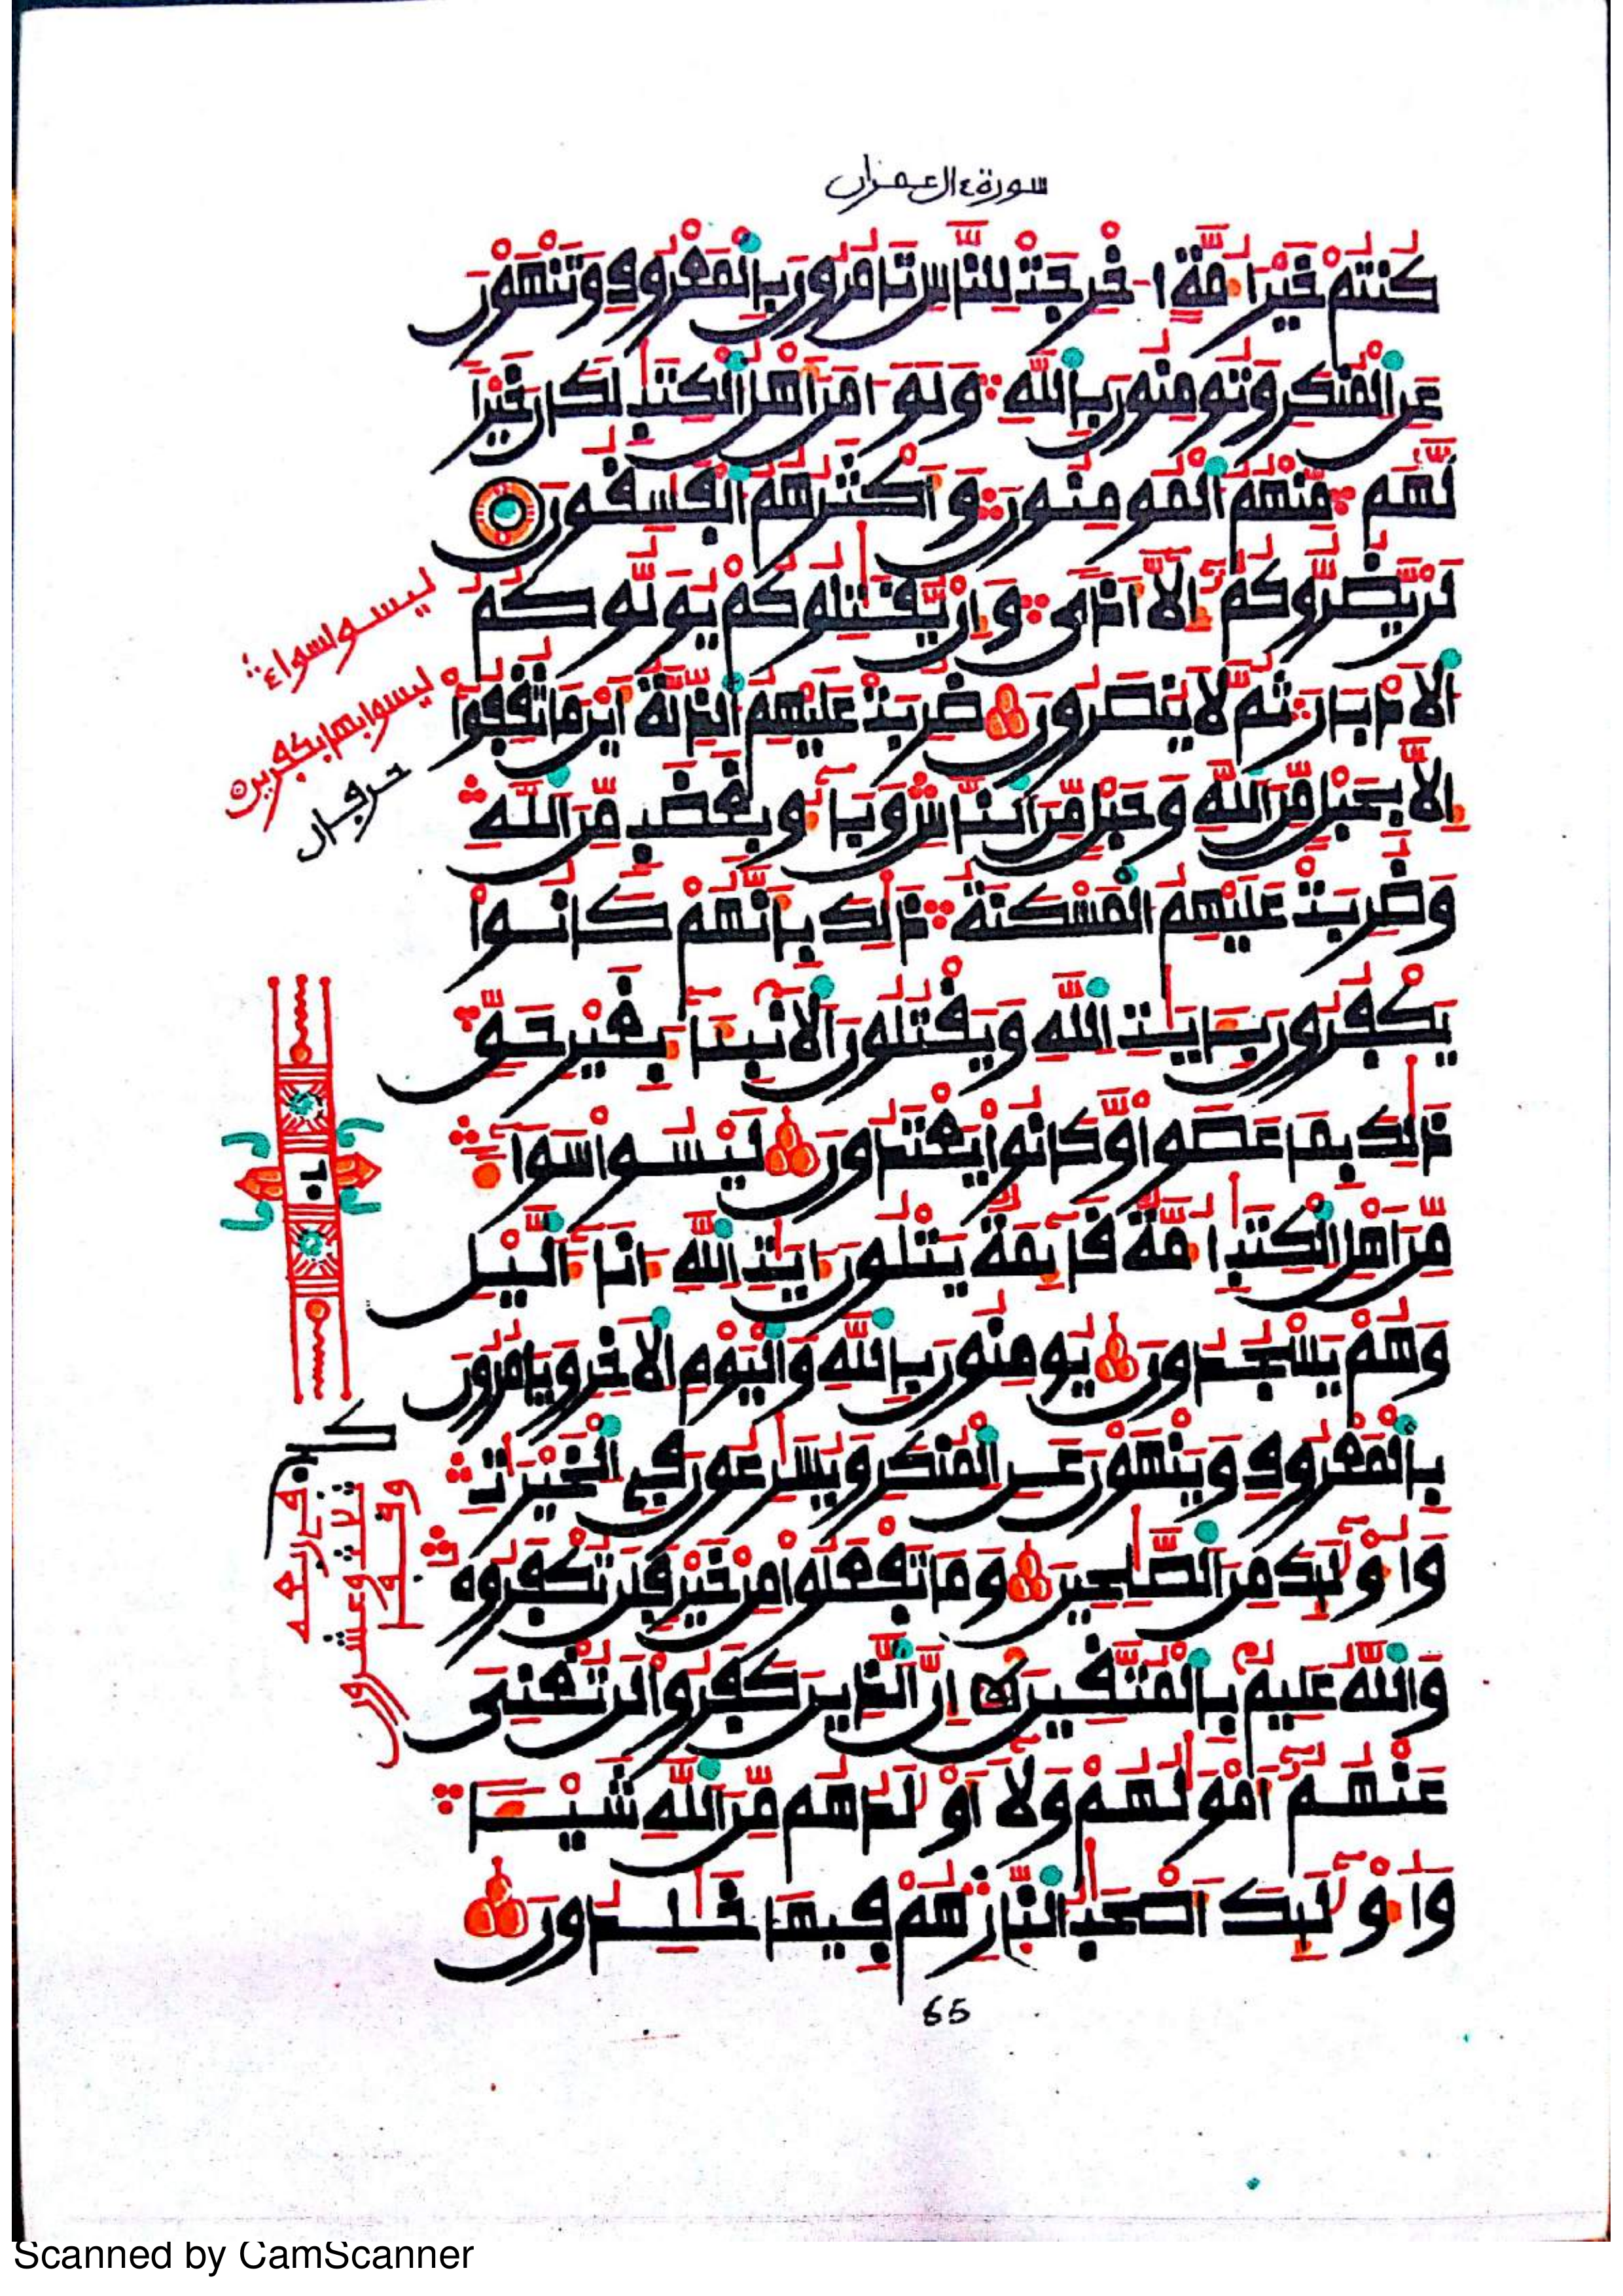 سورة ءال عمران
كُنتُمْ خَيْرَ أُمَّةٍ اُخْرِجَتْ لِلنَّاسِ تَامُرُونَ بِالْمَعْرُوفِ وَتَنْهَوْنَ
عَنِ الْمُنكَرِ وَتُومِنُونَ بِاللَّهِ وَلَوَ امَنَ أَهْلُ الْكِتَٰبِ لَكَانَ خَيْراً
لَّهُم مِّنْهُمُ الْمُومِنُونَ وَأَكْثَرُهُمُ الْفَٰسِقُونَ
لَنْ يَّضُرُّوكُمُ إِلَّا أَذىً وَإِنْ يُّقَٰتِلُوكُمْ يُوَلُّوكُمُ
الْأَدْبَارَ ثُمَّ لَا يُنصَرُونَ ضُرِبَتْ عَلَيْهِمُ الذِّلَّةُ أَيْنَ مَا ثُقِفُوا
إِلَّا بِحَبْلٍ مِّنَ اللَّهِ وَحَبْلٍ مِّنَ النَّاسِ وَبَاءُو بِغَضَبٍ مِّنَ اللَّهِ
وَضُرِبَتْ عَلَيْهِمُ الْمَسْكَنَةُ ذَٰلِكَ بِأَنَّهُمْ كَانُوا
يَكْفُرُونَ بِـَٔايَٰتِ اللَّهِ وَيَقْتُلُونَ الْأَنْبِئَاءَ بِغَيْرِ حَقٍّ
ذَٰلِكَ بِمَا عَصَوا وَّكَانُوا يَعْتَدُونَ لَيْسُوا سَوَاءً
مِّنَ اَهْلِ الْكِتَٰبِ أُمَّةٌ قَائِمَةٌ يَتْلُونَ ءَايَٰتِ اللَّهِ ءَانَاءَ الَّيْلِ
وَهُمْ يَسْجُدُونَ يُومِنُونَ بِاللَّهِ وَالْيَوْمِ الْأَخِرِ وَيَامُرُونَ
بِالْمَعْرُوفِ وَيَنْهَوْنَ عَنِ الْمُنكَرِ وَيُسَٰرِعُونَ فِي الْخَيْرَٰتِ
وَأُوْلَٰئِكَ مِنَ الصَّٰلِحِينَ وَمَا تَفْعَلُوا مِنْ خَيْرٍ فَلَن تُكْفَرُوهُ
وَاللَّهُ عَلِيمٌ بِالْمُتَّقِينَ إِنَّ الَّذِينَ كَفَرُوا لَن تُغْنِيَ
عَنْهُمُ أَمْوَٰلُهُمْ وَلَا أَوْلَٰدُهُم مِّنَ اللَّهِ شَيْـًٔا
وَأُوْلَٰئِكَ أَصْحَٰبُ النَّارِ هُمْ فِيهَا خَٰلِدُونَ
ليسوا سواء
ليسوا بها بكفرين
حرفان
65
Scanned by CamScanner